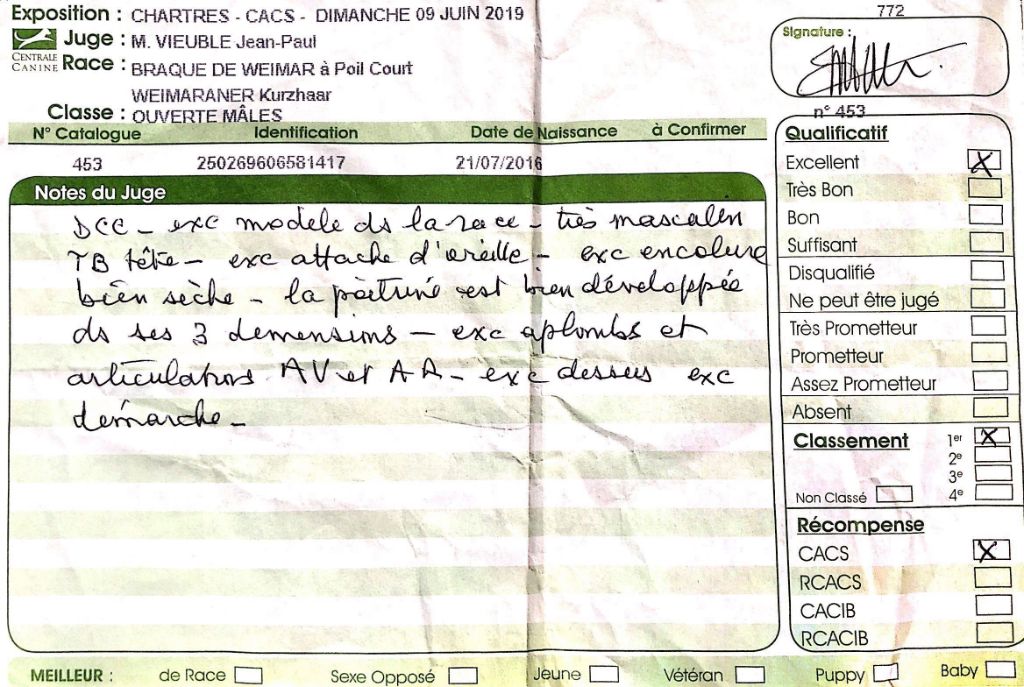 Exposition : CHARTRES - CACS - DIMANCHE 09 JUIN 2019
772
Juge : M. VIEUBLE Jean-Paul
Signature :
CENTRALE CANINE
Race : BRAQUE DE WEIMAR à Poil Court
WEIMARANER Kurzhaar
Classe : OUVERTE MÂLES
n° 453
N° Catalogue Identification Date de Naissance à Confirmer
453 250269606581417 21/07/2016
Notes du Juge
DCC - exc modele ds la race - très masculin
TB tête - exc attache d'oreille - exc encolure
bien sèche - la poitrine est bien développée
ds ses 3 demensions - exc aplombs et
articulations AV et AR - exc dessus exc
demarche -
Qualificatif
Excellent X
Très Bon
Bon
Suffisant
Disqualifié
Ne peut être jugé
Très Prometteur
Prometteur
Assez Prometteur
Absent
Classement 1er X
2e
3e
Non Classé 4e
Récompense
CACS X
RCACS
CACIB
RCACIB
MEILLEUR : de Race Sexe Opposé Jeune Vétéran Puppy Baby